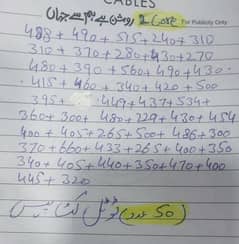 CABLES
روشنی ہے ہم سے جہاں 1 Core For Publicity Only
488 + 490 + 515 + 240 + 310
310 + 370 + 280 + 430 + 270
480 + 390 + 560 + 490 + 430
415 + 460 + 340 + 420 + 500
395 + 449 + 437 + 534 +
360 + 300 + 480 + 229 + 430 + 454
400 + 405 + 265 + 500 + 486 + 300
370 + 660 + 433 + 265 + 400 + 350
340 + 405 + 440 + 350 + 470 + 400
445 + 320
(50 عدد) ٹوٹل